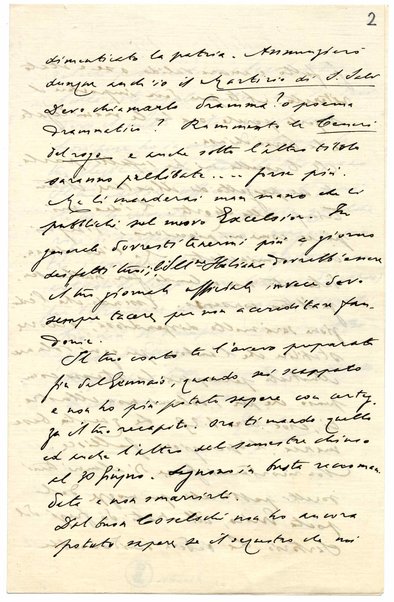 2
dimenticato la patria. Annunzierò
dunque anch'io il Martirio di S. Seb.
Devo chiamarlo Dramma? o poema
drammatico? Rammento le Ceneri
del rogo e anche sotto l'altro titolo
saranno palpitate.... forse più.
Me li manderai man mano che li
pubblichi sul nuovo Excelsior. In
generale dovresti tenermi più a giorno
dei fatti tuoi; l'Ill.ne Italiana dovrebb'essere
il tuo giornale ufficiale, invece devo
sempre tacere per non accreditare fan-
donie.
Il tuo conto te l'avevo preparato
fin dal Gennaio, quando sei scappato
e non ho più potuto sapere con certez-
za il tuo recapito. Ora ti mando quello
ed anche l'altro del semestre chiuso
al 30 Giugno. in busta raccoman-
data e non smarrirli.
Dal buon Coselschi non ho ancora
potuto sapere se il sequestro che mi